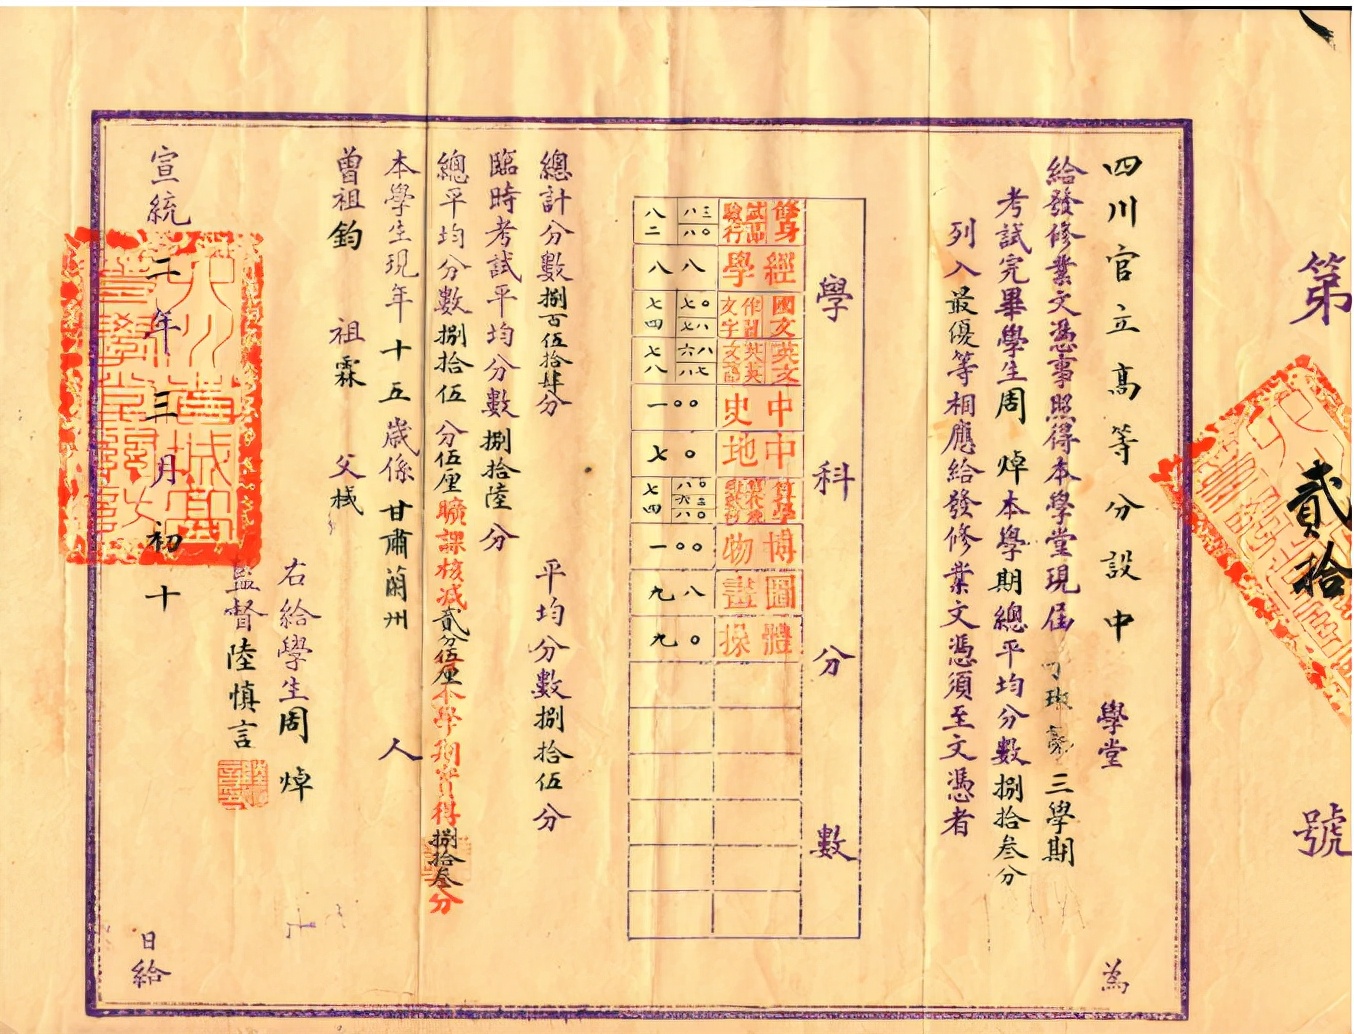 第 貳拾 號
四川官立高等分設中學堂 為
給發修業文憑事照得本學堂現届丁班第三學期
考試完畢學生周焯本學期總平均分數捌拾叁分
列入最優等相應給發修業文憑須至文憑者
學科分數
修身 試驗 品行 八三 八〇 八二
經學 八八
國文 作文 習字 七〇 七八 七四
英文 英文 英語 六八 八七 七八
中史 一〇〇
中地 七〇
算學 八〇 六三 八〇 七四
博物 一〇〇
圖畫 九八
體操 九〇
總計分數捌百伍拾肆分 平均分數捌拾伍分
臨時考試平均分數捌拾陸分
總平均分數捌拾伍分伍厘曠課核減貳分伍厘本學期實得捌拾叁分
本學生現年十五歲係甘肅蘭州人
曾祖鈞 祖霖 父棫
右給學生周焯
監督陸慎言
宣統二年三月初十日給